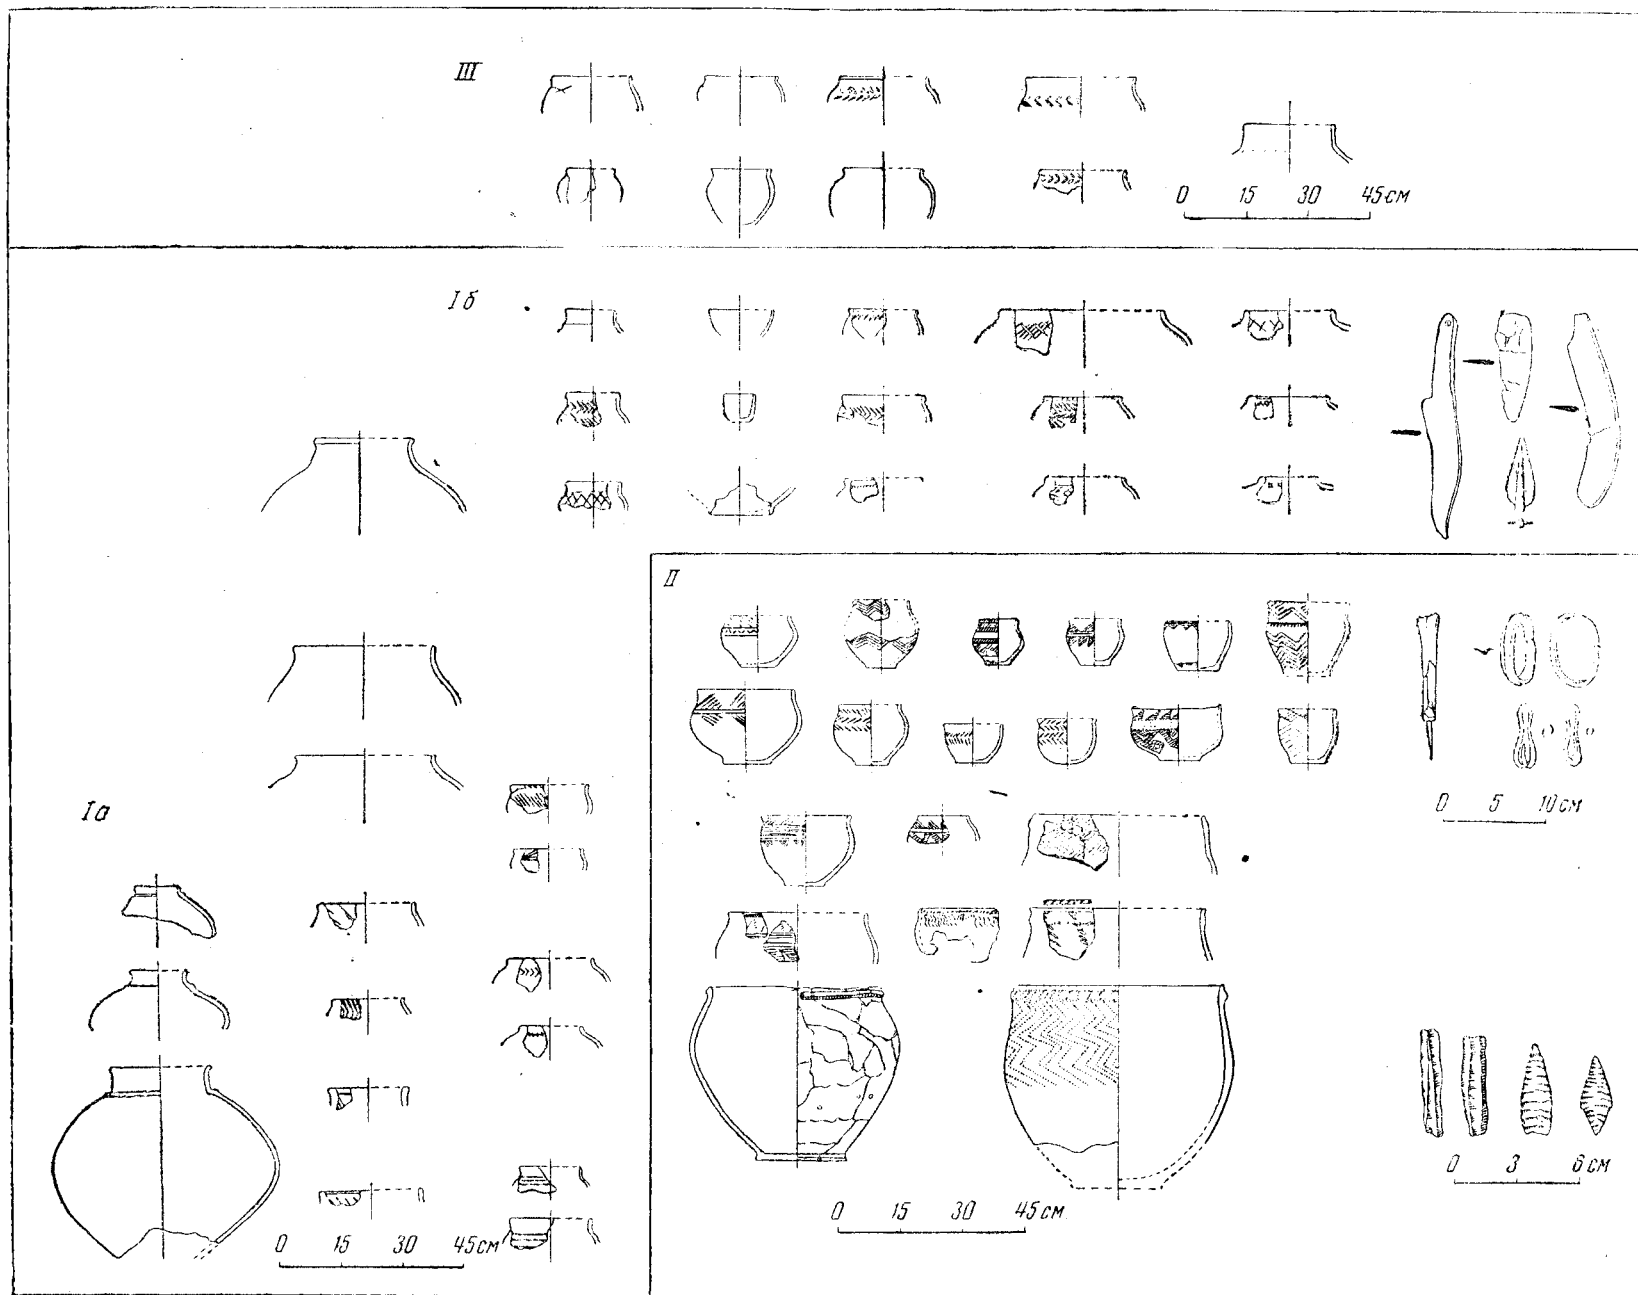 III
0 15 30 45 см
Iб
II
0 5 10 см
Iа
0 3 6 см
0 15 30 45 см
0 15 30 45 см